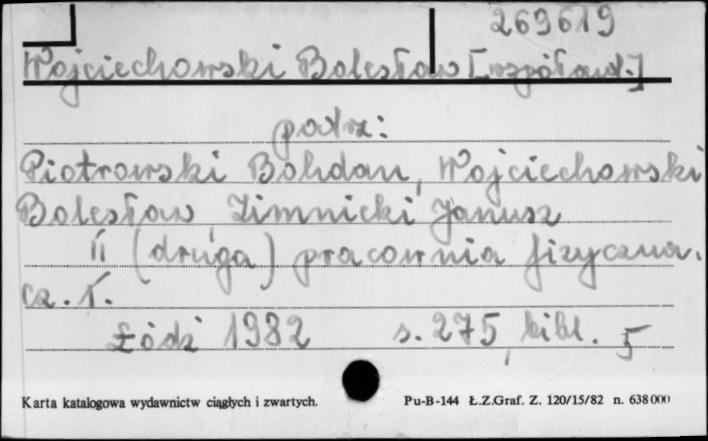 269619
Wojciechowski Bolesław [współaut.]
patrz:
Piotrowski Bohdan, Wojciechowski
Bolesław, Zimnicki Janusz
II (druga) pracownia fizyczna.
cz. I.
Łódź 1982 s. 275, bibl. 5
Karta katalogowa wydawnictw ciągłych i zwartych. Pu-B-144 Ł.Z.Graf. Z. 120/15/82 n. 638000